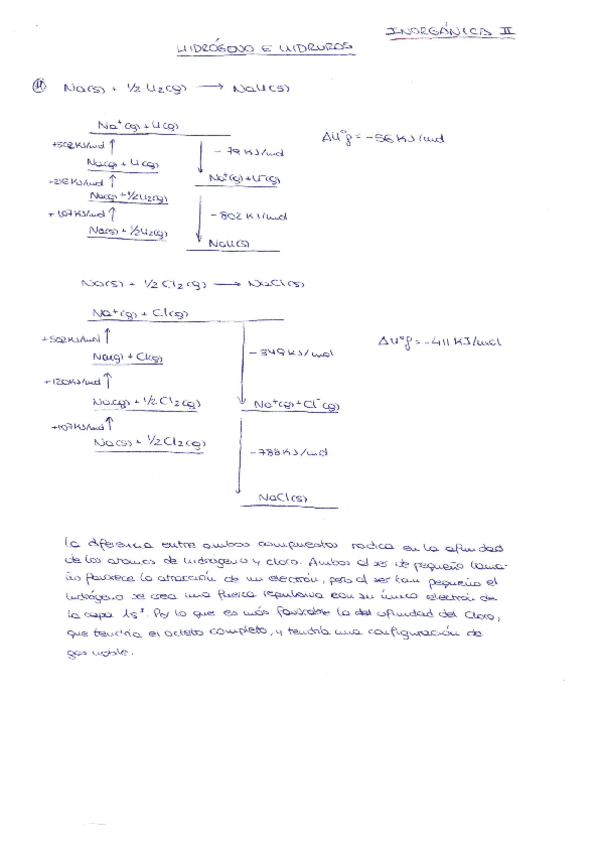 INORGÁNICA II
HIDRÓGENO E HIDRUROS
Na(s) + 1/2 H2(g) → NaH(s)
Na+(g) + H(g)
ΔHºf = -56 KJ/mol
+502 KJ/mol ↑
- 79 KJ/mol
Na(g) + H(g)
Na+(g) + H-(g)
+218 KJ/mol ↑
Na(g) + 1/2 H2(g)
+ 107 KJ/mol ↑
- 802 KJ/mol
Na(s) + 1/2 H2(g)
NaH(s)
Na(s) + 1/2 Cl2(g) → NaCl(s)
Na+(g) + Cl(g)
+502 KJ/mol ↑
- 349 KJ/mol
ΔHºf = -411 KJ/mol
Na(g) + Cl(g)
+120 KJ/mol ↑
Na(g) + 1/2 Cl2(g)
Na+(g) + Cl-(g)
+107 KJ/mol ↑
Na(s) + 1/2 Cl2(g)
- 788 KJ/mol
NaCl(s)
La diferencia entre ambos compuestos radica en la afinidad
de los átomos de hidrógeno y cloro. Ambos al ser de pequeño tama-
ño favorece la atracción de un electrón, pero al ser tan pequeño el
hidrógeno se crea una fuerza repulsiva con su único electrón de
la capa 1s¹. Por lo que es más favorable la del afinidad del Cloro,
que tendría el octeto completo, y tendría una configuración de
gas noble.